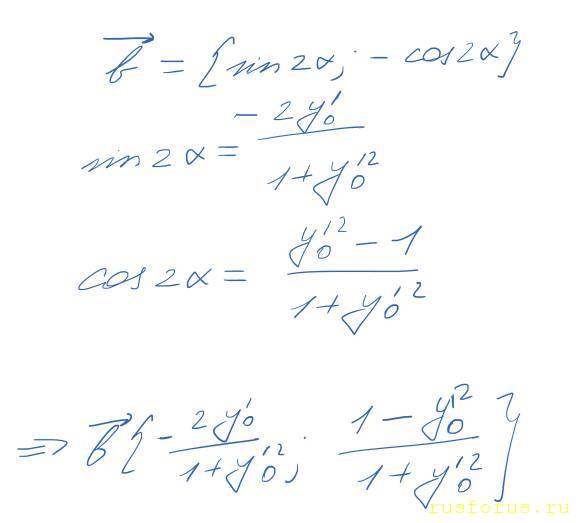 $\vec{b} = \{\sin 2\alpha; -\cos 2\alpha\}$
$\sin 2\alpha = \frac{-2y_0'}{1+y_0'^2}$
$\cos 2\alpha = \frac{y_0'^2 - 1}{1+y_0'^2}$
$\Rightarrow \vec{b}\{-\frac{2y_0'}{1+y_0'^2}; \frac{1-y_0'^2}{1+y_0'^2}\}$
rusforus.ru